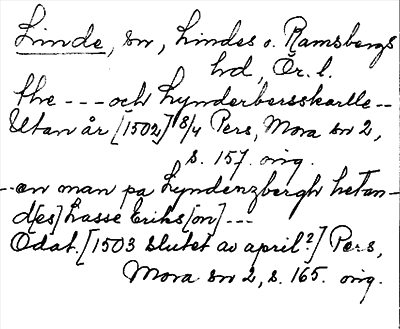 Linde, sn, Lindes o. Ramsbergs
hd, Ör. l.
the --- och Lynderbersskarlle--
Utan år [1502] 18/4 Pers, Mora sn 2,
s. 157. orig.
--en man pa Lyndenzbergh hetan-
d[es] Lasse Eriks[on] ---
Odat. [1503 slutet av april?] Pers,
Mora sn 2, s. 165. orig.